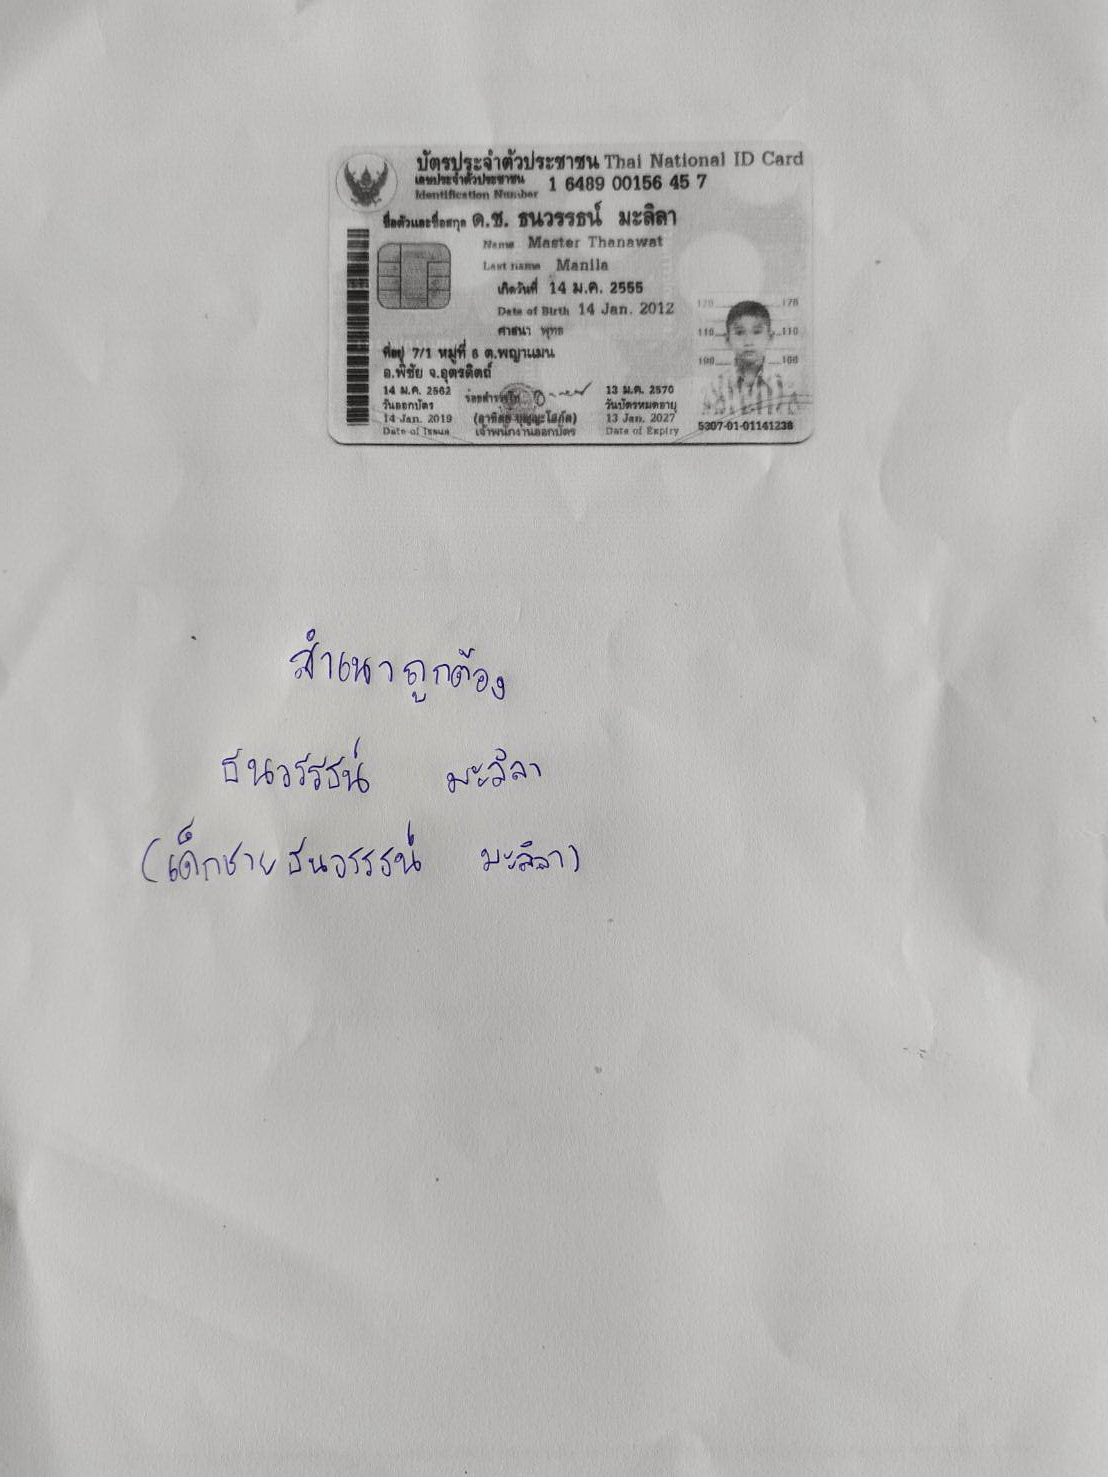 บัตรประจำตัวประชาชน Thai National ID Card
เลขประจำตัวประชาชน
Identification Number
1 6489 00156 45 7
ชื่อตัวและชื่อสกุล ด.ช. ธนวรรธน์ มะลิลา
Name Master Thanawat
Last name Manila
เกิดวันที่ 14 ม.ค. 2555
Date of Birth 14 Jan. 2012
ศาสนา พุทธ
ที่อยู่ 7/1 หมู่ที่ 6 ต.พญาแมน
อ.พิชัย จ.อุตรดิตถ์
14 ม.ค. 2562
วันออกบัตร
14 Jan. 2019
Date of Issue
เจ้าพนักงานออกบัตร
13 ม.ค. 2570
วันบัตรหมดอายุ
13 Jan. 2027
Date of Expiry
5307-01-01141238
สำเนาถูกต้อง
ธนวรรธน์ มะลิลา
(เด็กชายธนวรรธน์ มะลิลา)